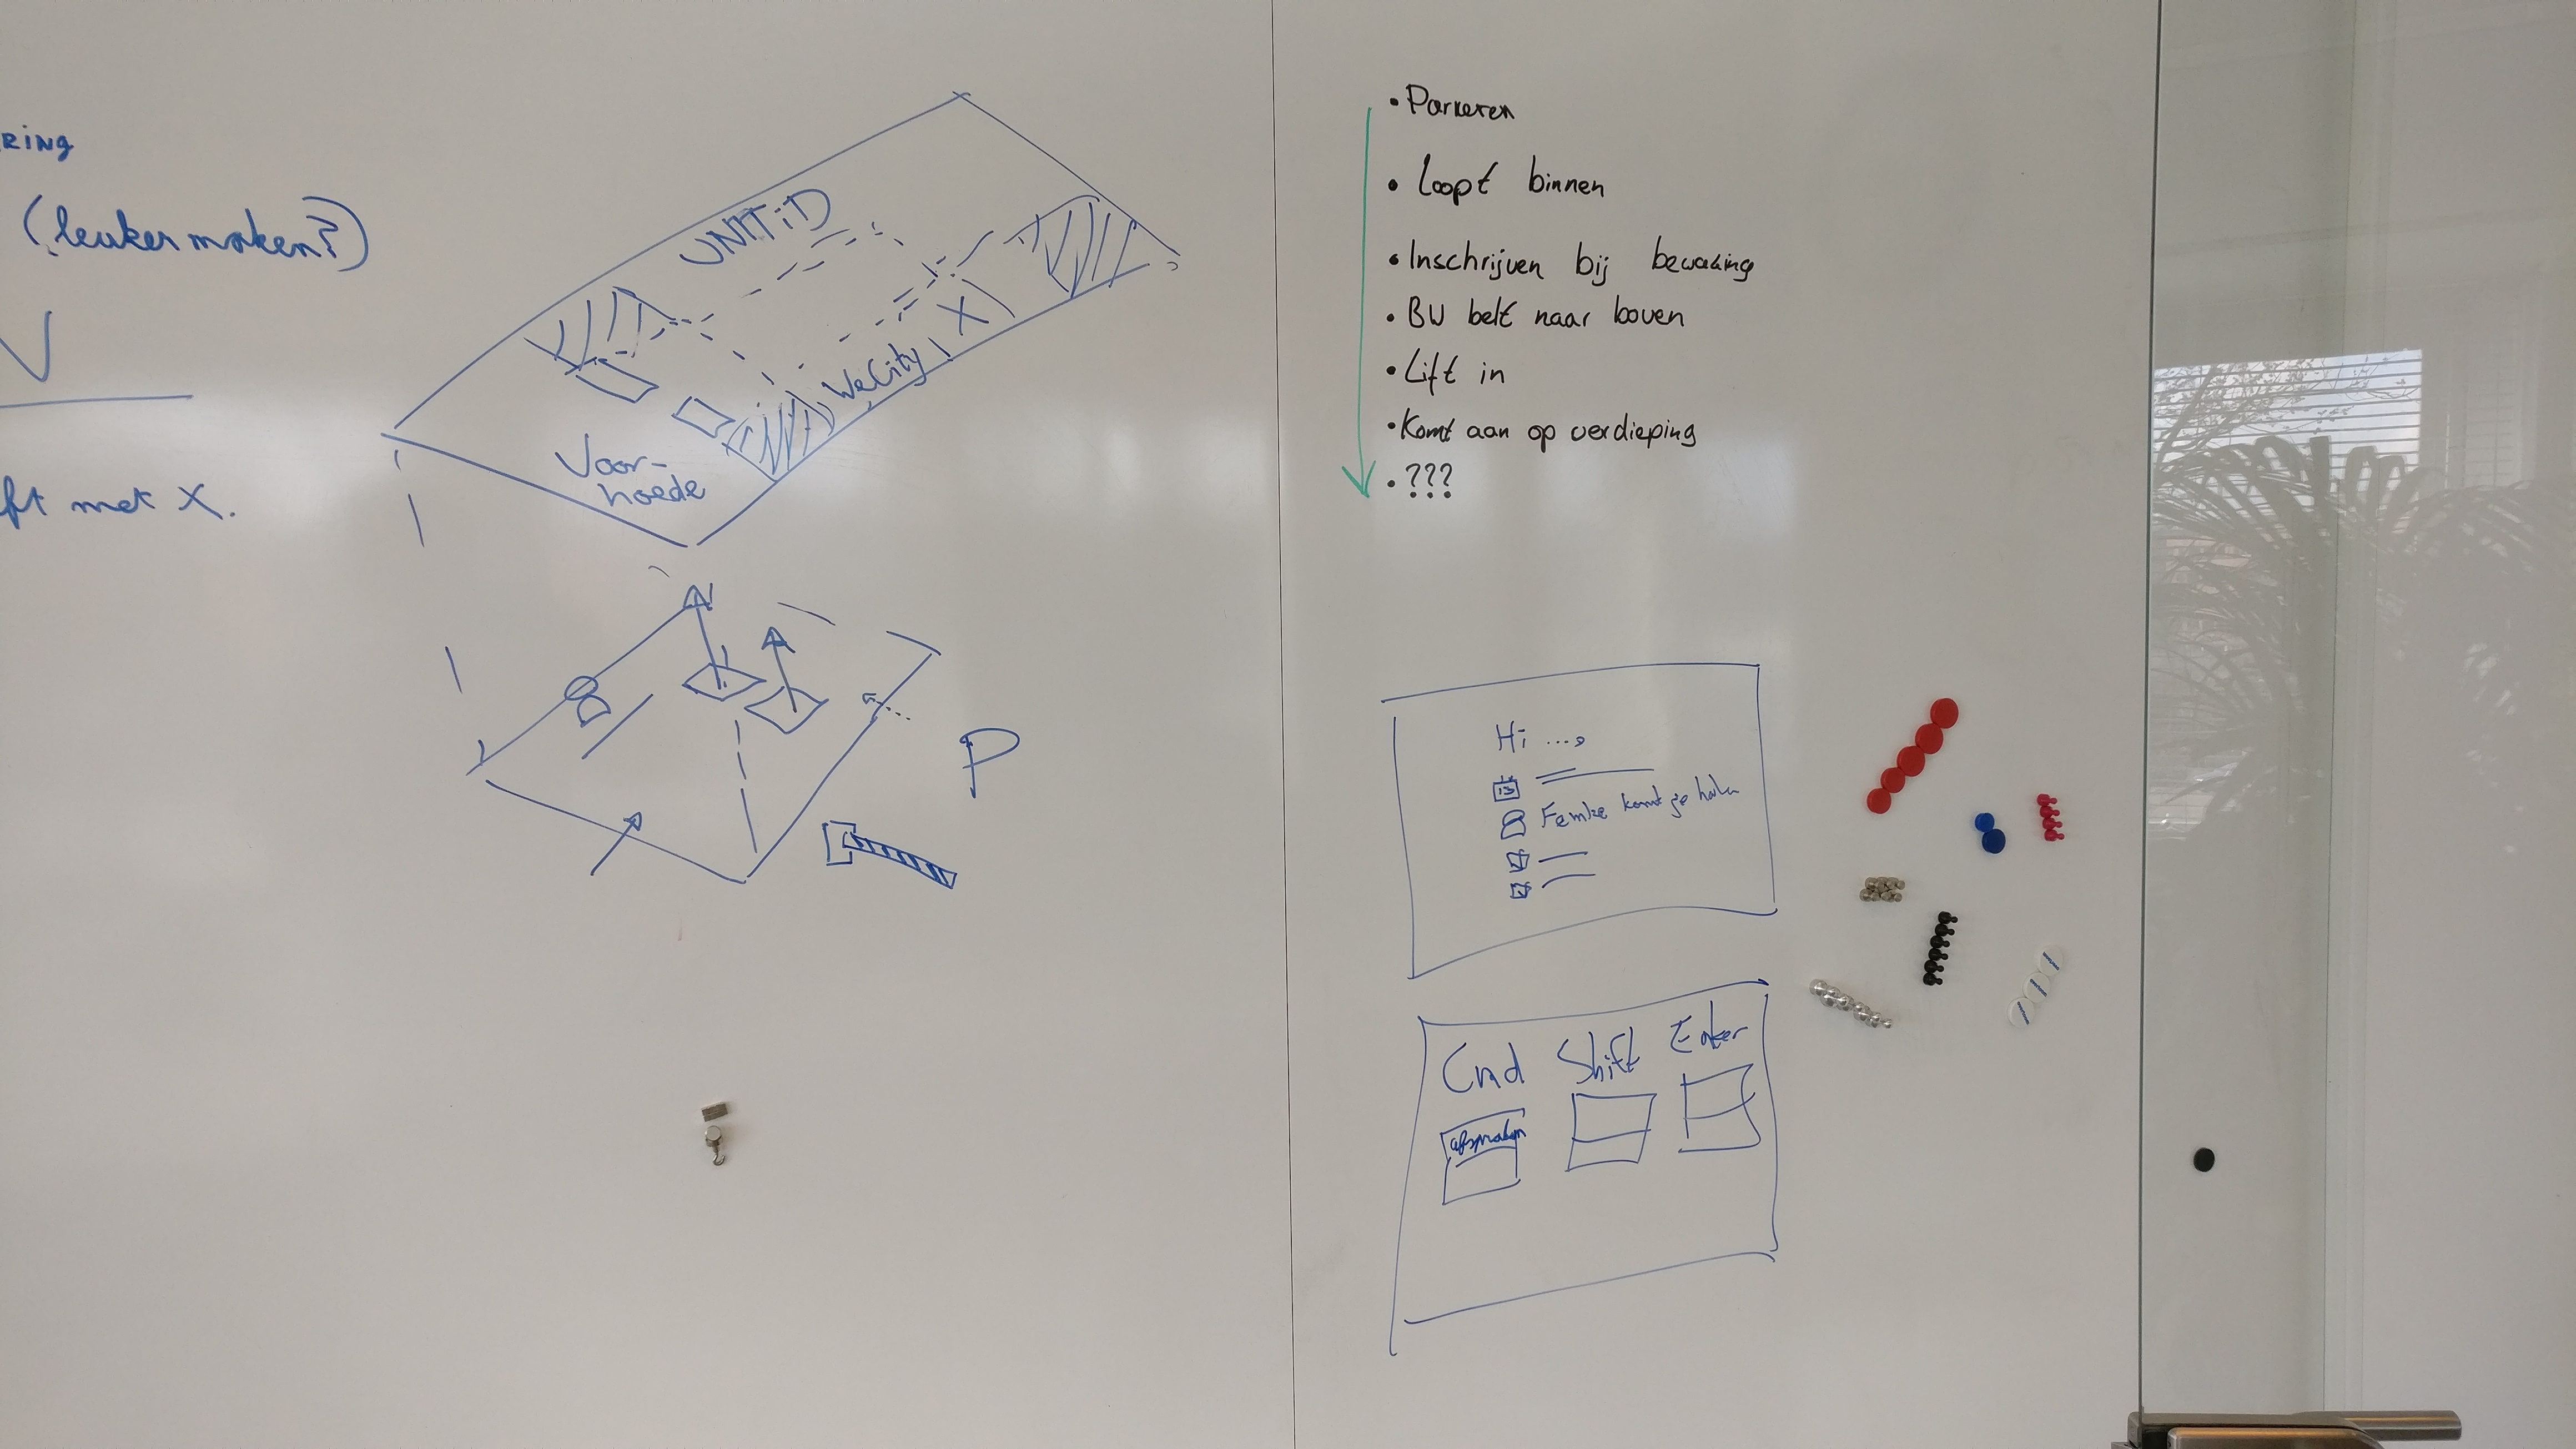 RING
(leuker maken?)
V
ft met X.
UNITiD
X
WeCity
Voor-
hoede
P
• Parkeren
• Loopt binnen
• Inschrijven bij bewaking
• BW belt naar boven
• Lift in
• Komt aan op verdieping
• ???
Hi ...,
Femke komt je halen
Cmd Shift Enter
afspraken